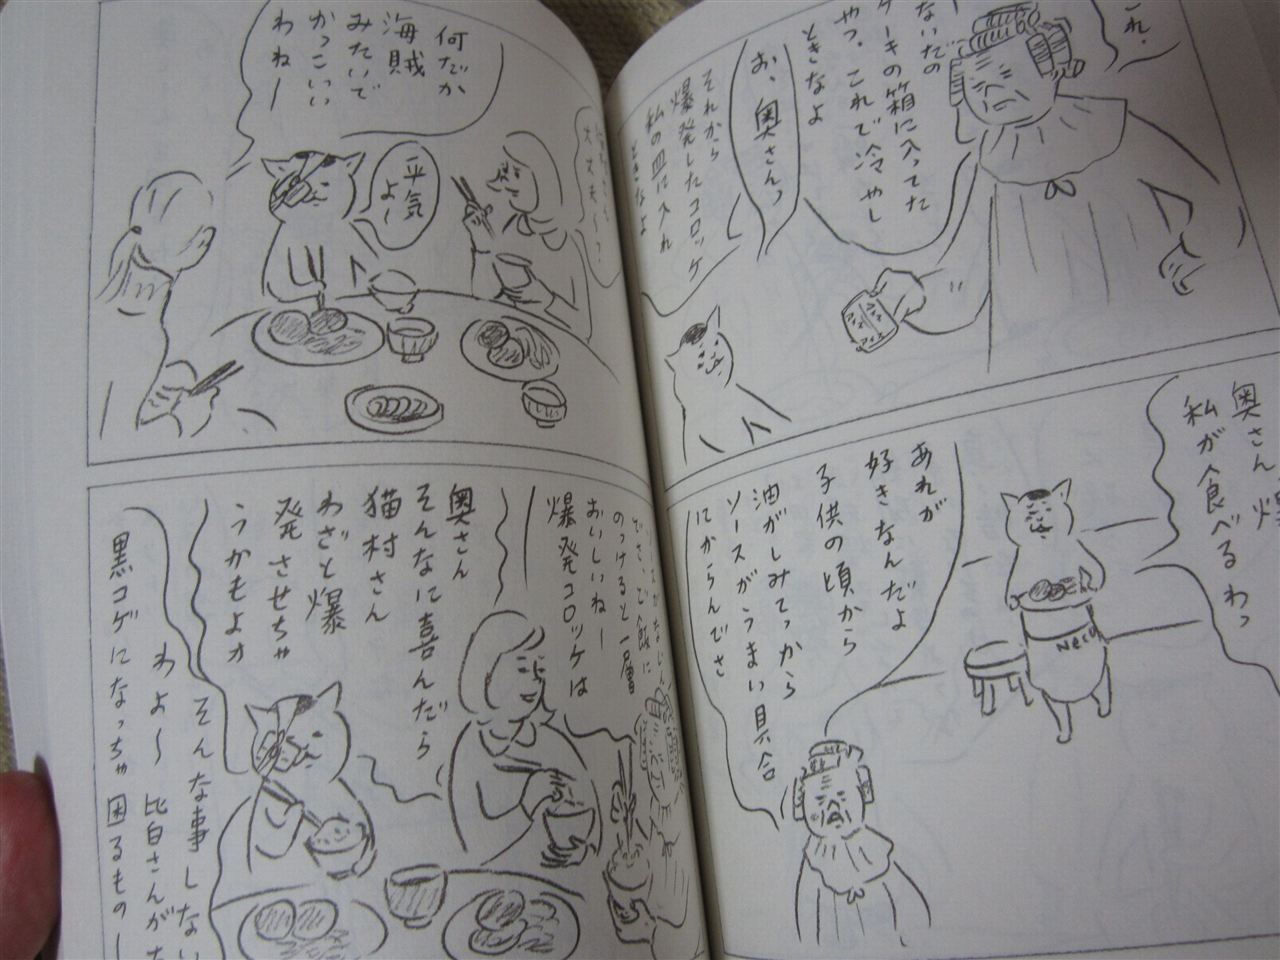 これ.
ないだの
ケーキの箱に入ってた
やつ、これで冷やし
ときなよ
お、奥さんっ
それから
爆発したコロッケ
私の皿に入れ
ときなよ
アイス
奥さん
私が食べるわっ
Neco
あれが
好きなんだよ
子供の頃から
油がしみてっから
ソースがうまい具合
にからんでさ
平気
よ〜
何だか
海賊
みたいで
かっこいい
わねー
ご飯に
のっけると一層
おいしいねー
爆発コロッケは
奥さん
そんなに喜んだら
猫村さん
わざと爆
発させちゃ
うかもよォ
そんな事しない
わよ〜 皆さんが
黒コゲになっちゃ困るもの